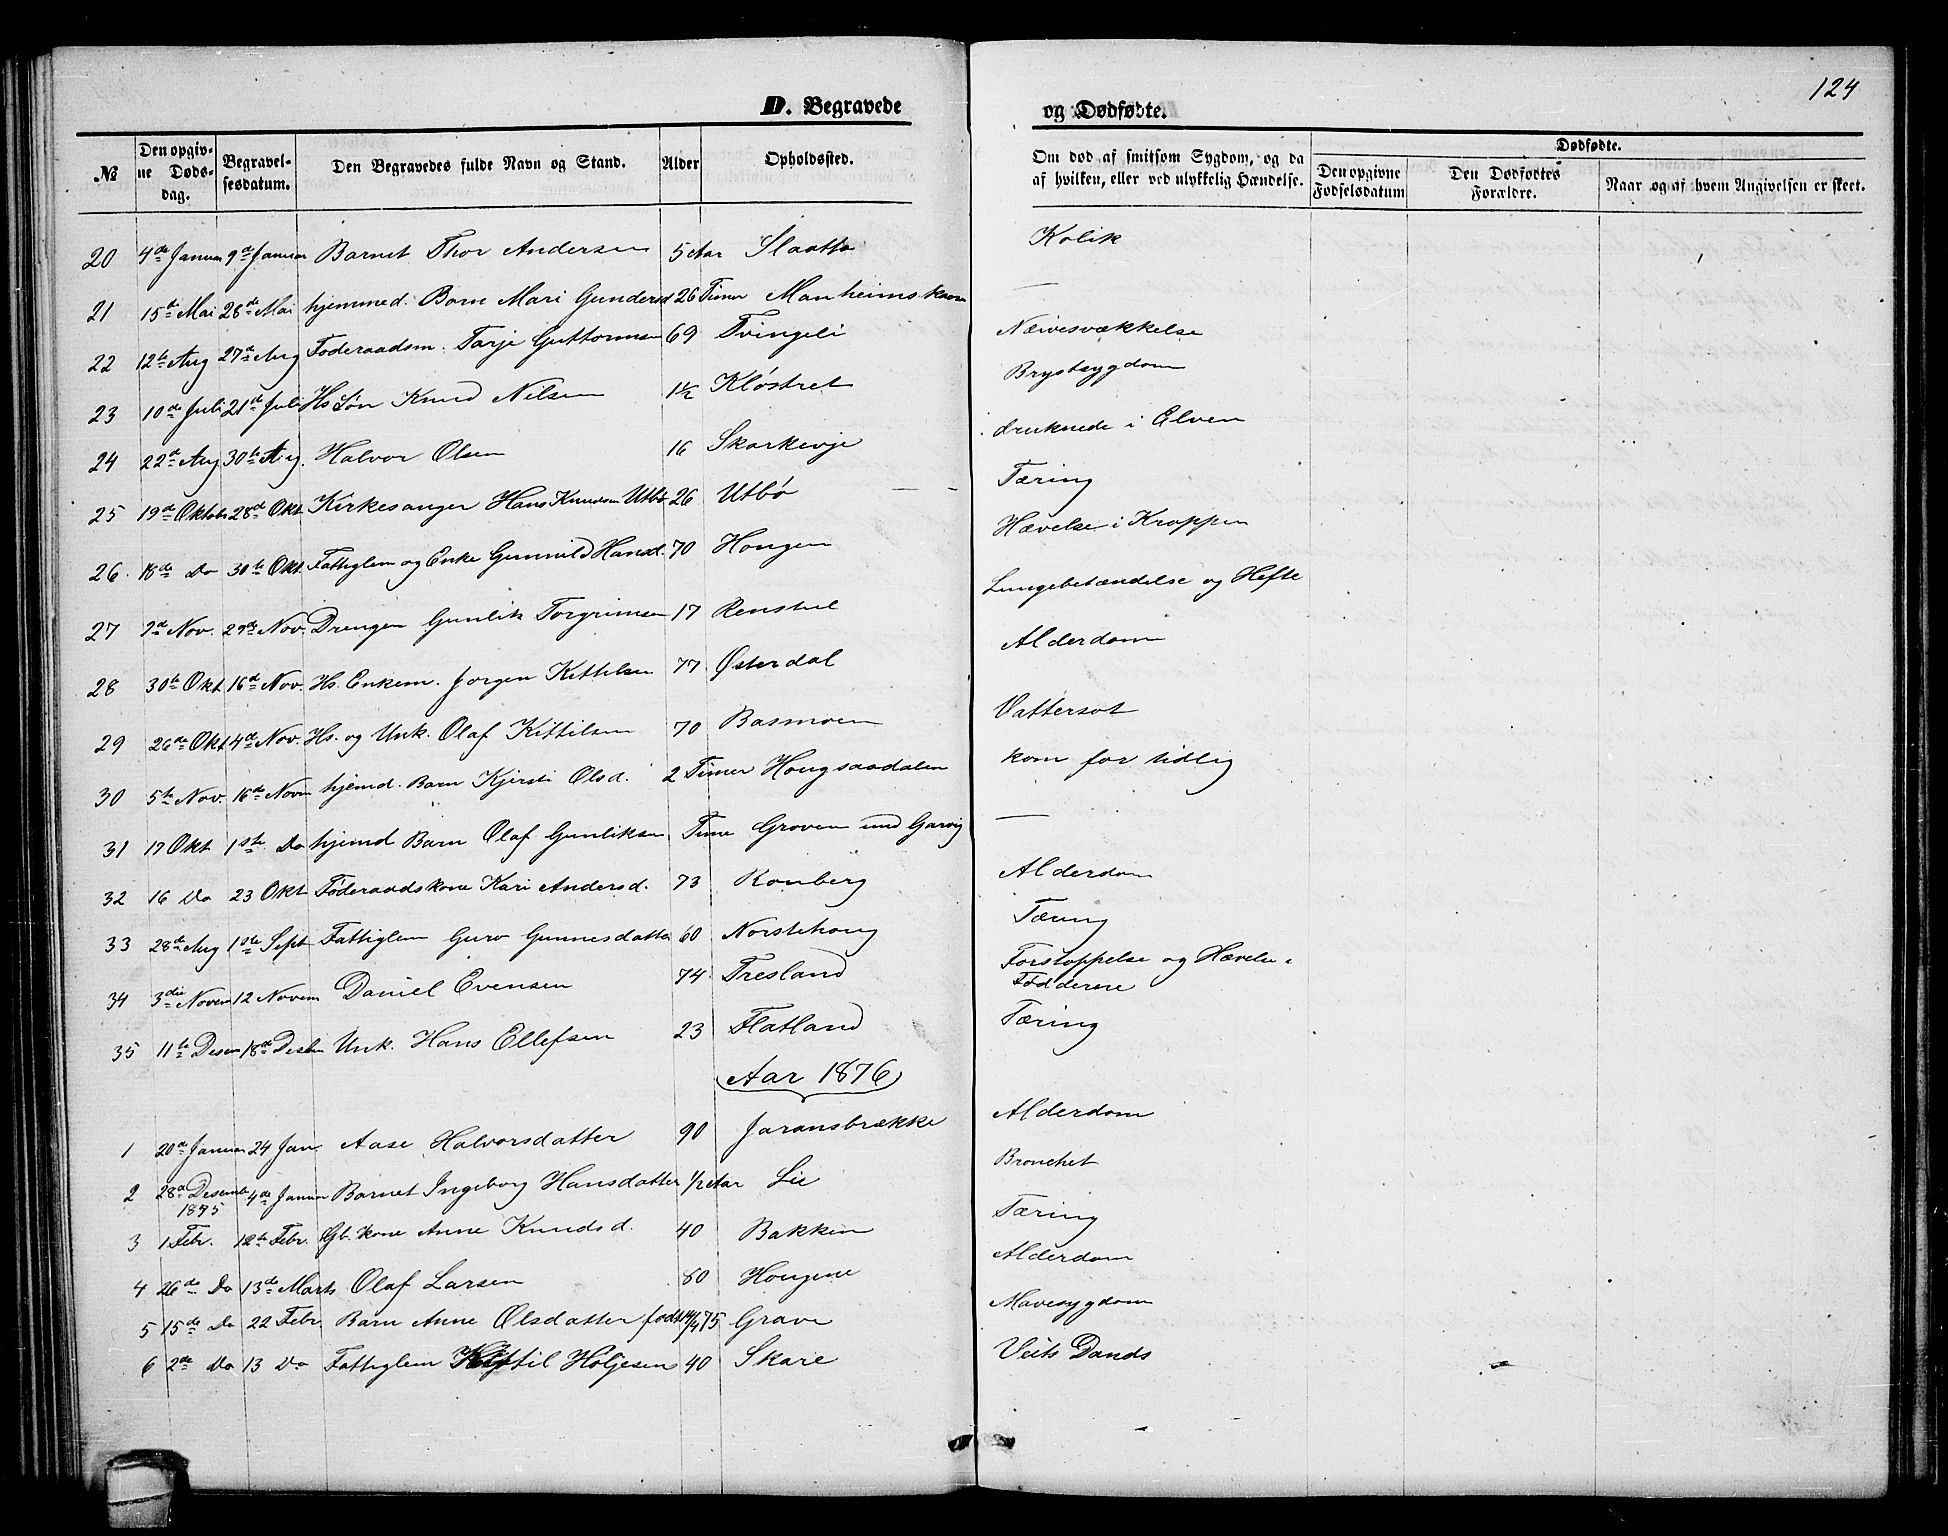 124
D. Begravede og Dødfødte.
№ Den opgivne Dødsdag. Begravelsesdatum. Den Begravedes fulde Navn og Stand. Alder Opholdssted. Om død af smitsom Sygdom, og da af hvilken, eller ved ulykkelig Hændelse. Dødfødte.
Den opgivne Fødselsdatum Den Dødfødtes Forældre. Naar og af hvem Angivelsen er skeet.
20 4de Januar 9de Januar Barnet Thor Andersen 5 Aar Slaatta Kolik
21 15de Mai 28de Mai hjemmed. Barn Mari Gundersd 26 Timer Manheims —
22 12te Aug 27de Aug Føderaadsm. Tarje Guttormsen 69 Tvingeli Nervesvækkelse
23 10de Juli 21de Juli Hs Søn Knud Nilsen 1½ Kløstret Brystsygdom
24 22de Aug 30te Aug. Halvor Olsen 16 Skarkevje druknede i Elven
25 19de Oktobr 28de Okt Kirkesanger Hans Knudsen Utbø 26 Utbø Tæring
26. 18de Do 30te Okt Fattiglem og Enke Gunnild Hansd. 70 Hougen Hævelse i Kroppen
27 7de Nov. 29de Nov. Drengen Gunlik Torgrimsen 17 Renstul Lungebetændelse og Hefte
28 30te Okt 16de Nov. Hs. Enkem. Jørgen Kittilsen 77 Østerdal Alderdom
29 26de Okt 4de Nov. Hs. og Unk. Olaf Kittilsen 70 Basmoen Vattersot
30 5te Nov. 16de Novm hjemd. Barn Kjersti Olsd. 2 Timer Hougsaadalen kom for tidlig
31 17 Okt 1ste Do hjemd Barn Olaf Gunliksen Time Groven und Garvig —
32 16 Do 23 Okt Føderaadskone Kari Andersd. 73 Ronberg Alderdom
33 28de Aug 1ste Sept Fattiglem Guro Gunnesdatter 60 Norstehoug Tæring
34 3die Novem 12 Novem Daniel Evensen 74 Tresland Forstoppelse og Hævelse i Fødderene
35 11te Desem 18de Desbm Unk. Hans Ellefsen 23 Flatland Tæring
Aar 1876
1 20de Januar 24 Jan. Aase Halvorsdatter 90 Jaransbrække Alderdom
2 28de Desembr 1875 4de Januar Barnet Ingeborg Hansdatter 1/2 Aar Lie Bronchet
3 1 Febr. 12te Febr. Gb. kone Anne Knudsd. 40 Bakken Tæring
4 26de Do 13de Marts Olaf Larsen 80 Hougene Alderdom
5 15de Do 22 Febr Barn Anne Olsdatter født 14/4 75 Grave Mavesygdom
6 2de Do 13 Do Fattiglem Kittil Høljesen 40 Skare Veits Dands